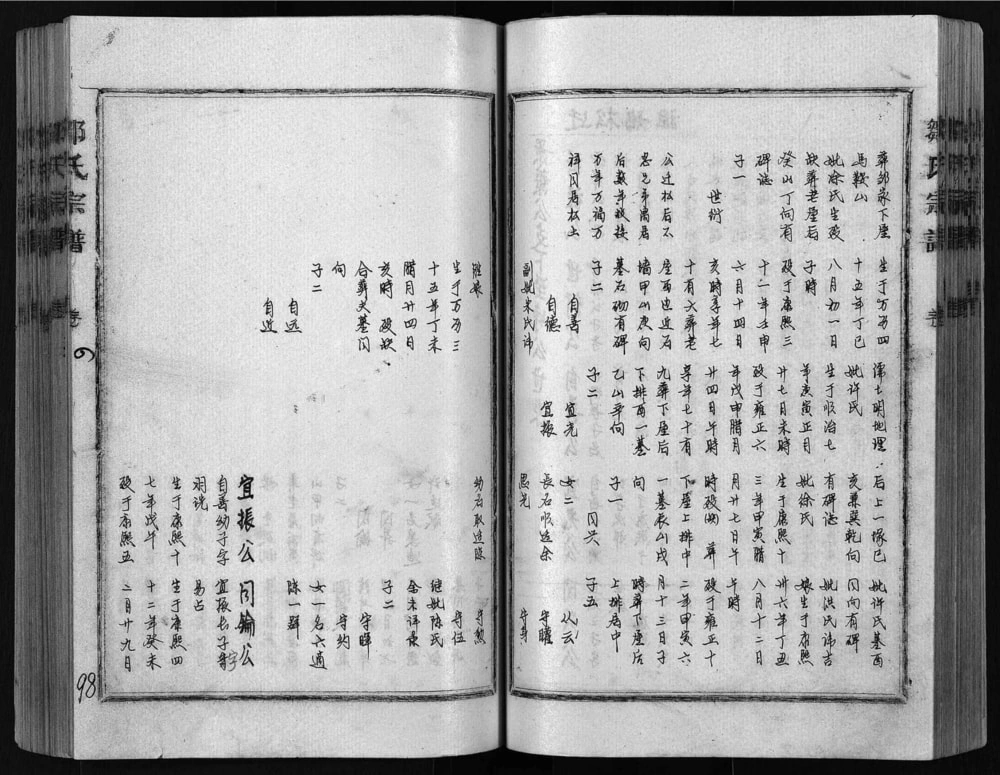 鄒氏宗譜
葬邹家下屋
馬鞍山
妣徐氏生歿
缺葬老屋后
癸山丁向有
碑誌
子一
世衍
公迁松后不
忘兄弟满居
后数年我接
万年万福万
祥同居松土
生于万历四
十五年丁巳
八月初一日
子時
歿于康熙三
十一年壬申
六月十四日
亥時享年七
十有六葬老
屋西边近石
墙甲山庚向
墓石砌有碑
子二
自善
自德
副妣宋氏讳
儒士明地理
妣许氏
生于顺治七
年庚寅正月
廿七日未時
歿于雍正六
年戊申腊月
廿四日午時
享年七十有
九葬下屋后
下排酉一墓
乙山辛向
子二
宜光
宜振
后上一塚巳
亥兼巽乾向
有碑誌
妣徐氏
生于康熙十
三年甲寅腊
月廿七日午
時歿 葬
下屋上排中
一墓辰山戌
向
子一 同兴
女二
長名順适余
思光
妣许氏墓酉
同向有碑
妣洪氏讳吉
娘生于康熙
卅六年丁丑
八月十二日
午時
歿于雍正十
二年甲寅六
月十三日子
時葬下屋后
上排居中
子五
从云
守曜
守身
胜娘
生于万历三
十五年丁未
腊月廿四日
亥時 歿缺
合葬夫墓同
向
子二
自远
自达
幼名取适陈
宜振公
自善幼子字
生于康熙十
七年戊午
歿于康熙五
守勲
守位
继妣陈氏
余未详录
子二
守晖
守约
女一名六適
陈一群
同鑰公
宜振长子字
易占
生于康熙四
十二年癸未
二月廿九日
邹氏宗譜
98